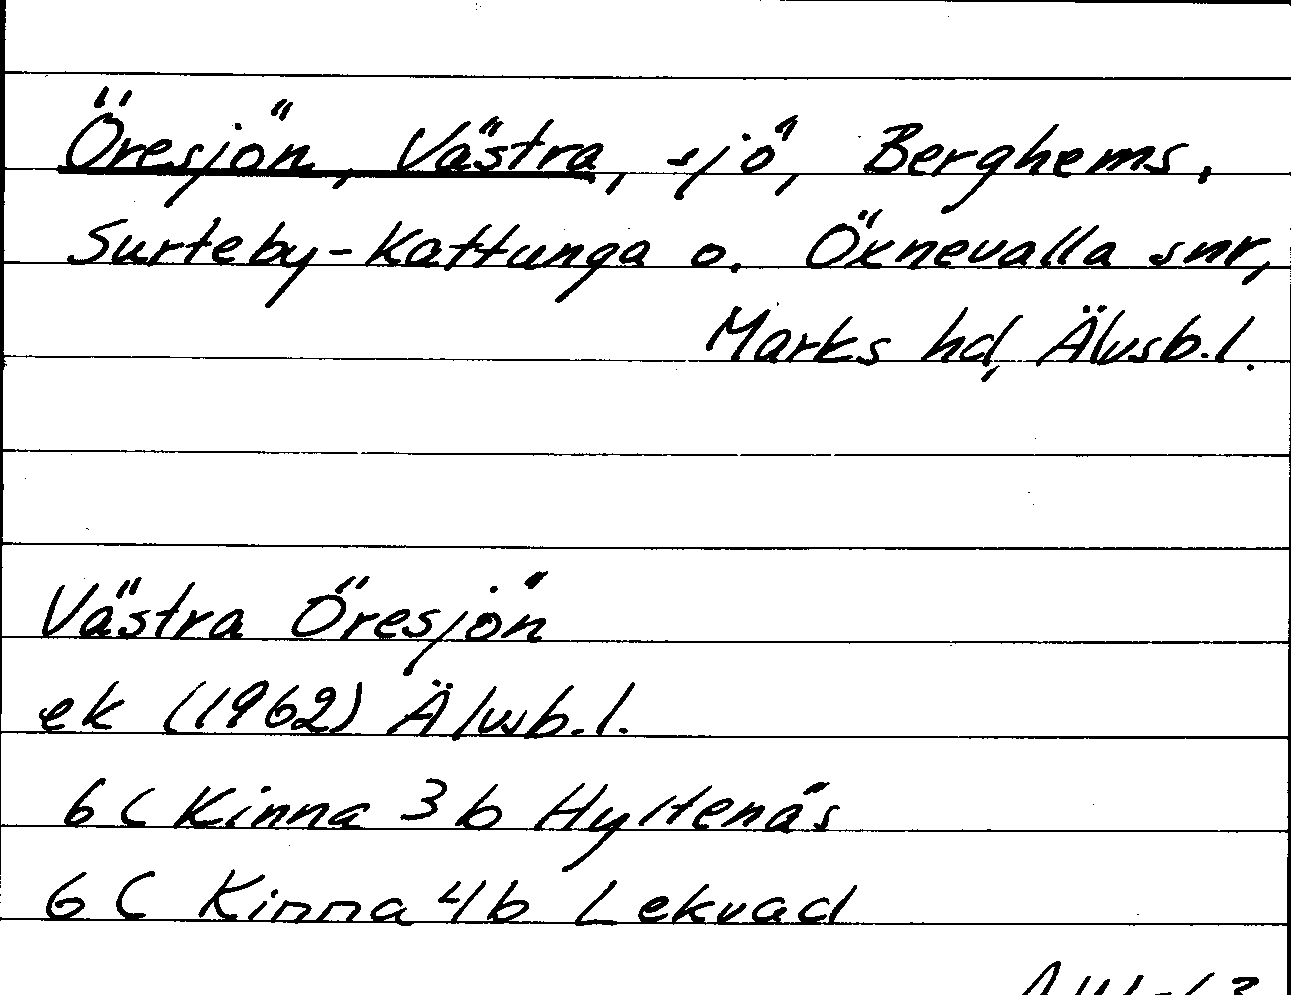 Öresjön, Västra, sjö, Berghems,
Surteby-Kattunga o. Öxnevalla snr,
Marks hd, Älvsb.l.
Västra Öresjön
ek (1962) Älvsb.l.
6 C Kinna 3 b Hyltenäs
6 C Kinna 4 b Lekvad